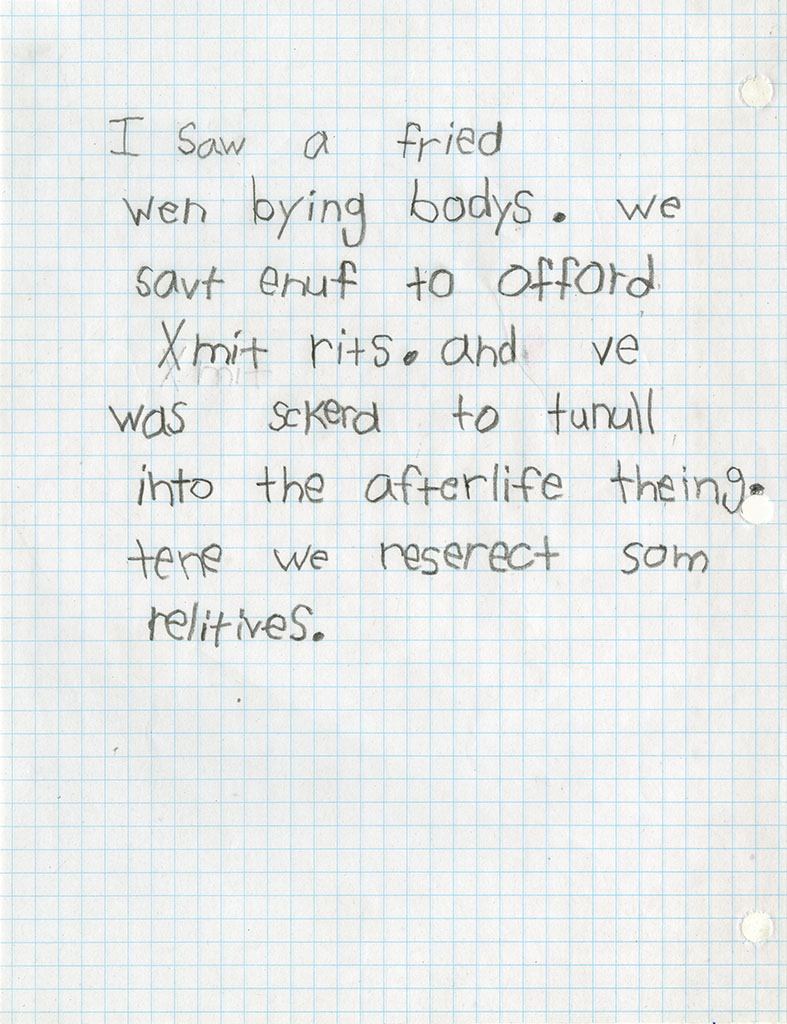 I saw a fried
wen bying bodys. we
savt enuf to offord
Xmit rits. and ve
was sckerd to tunull
into the afterlife theing.
tene we reserect som
relitives.